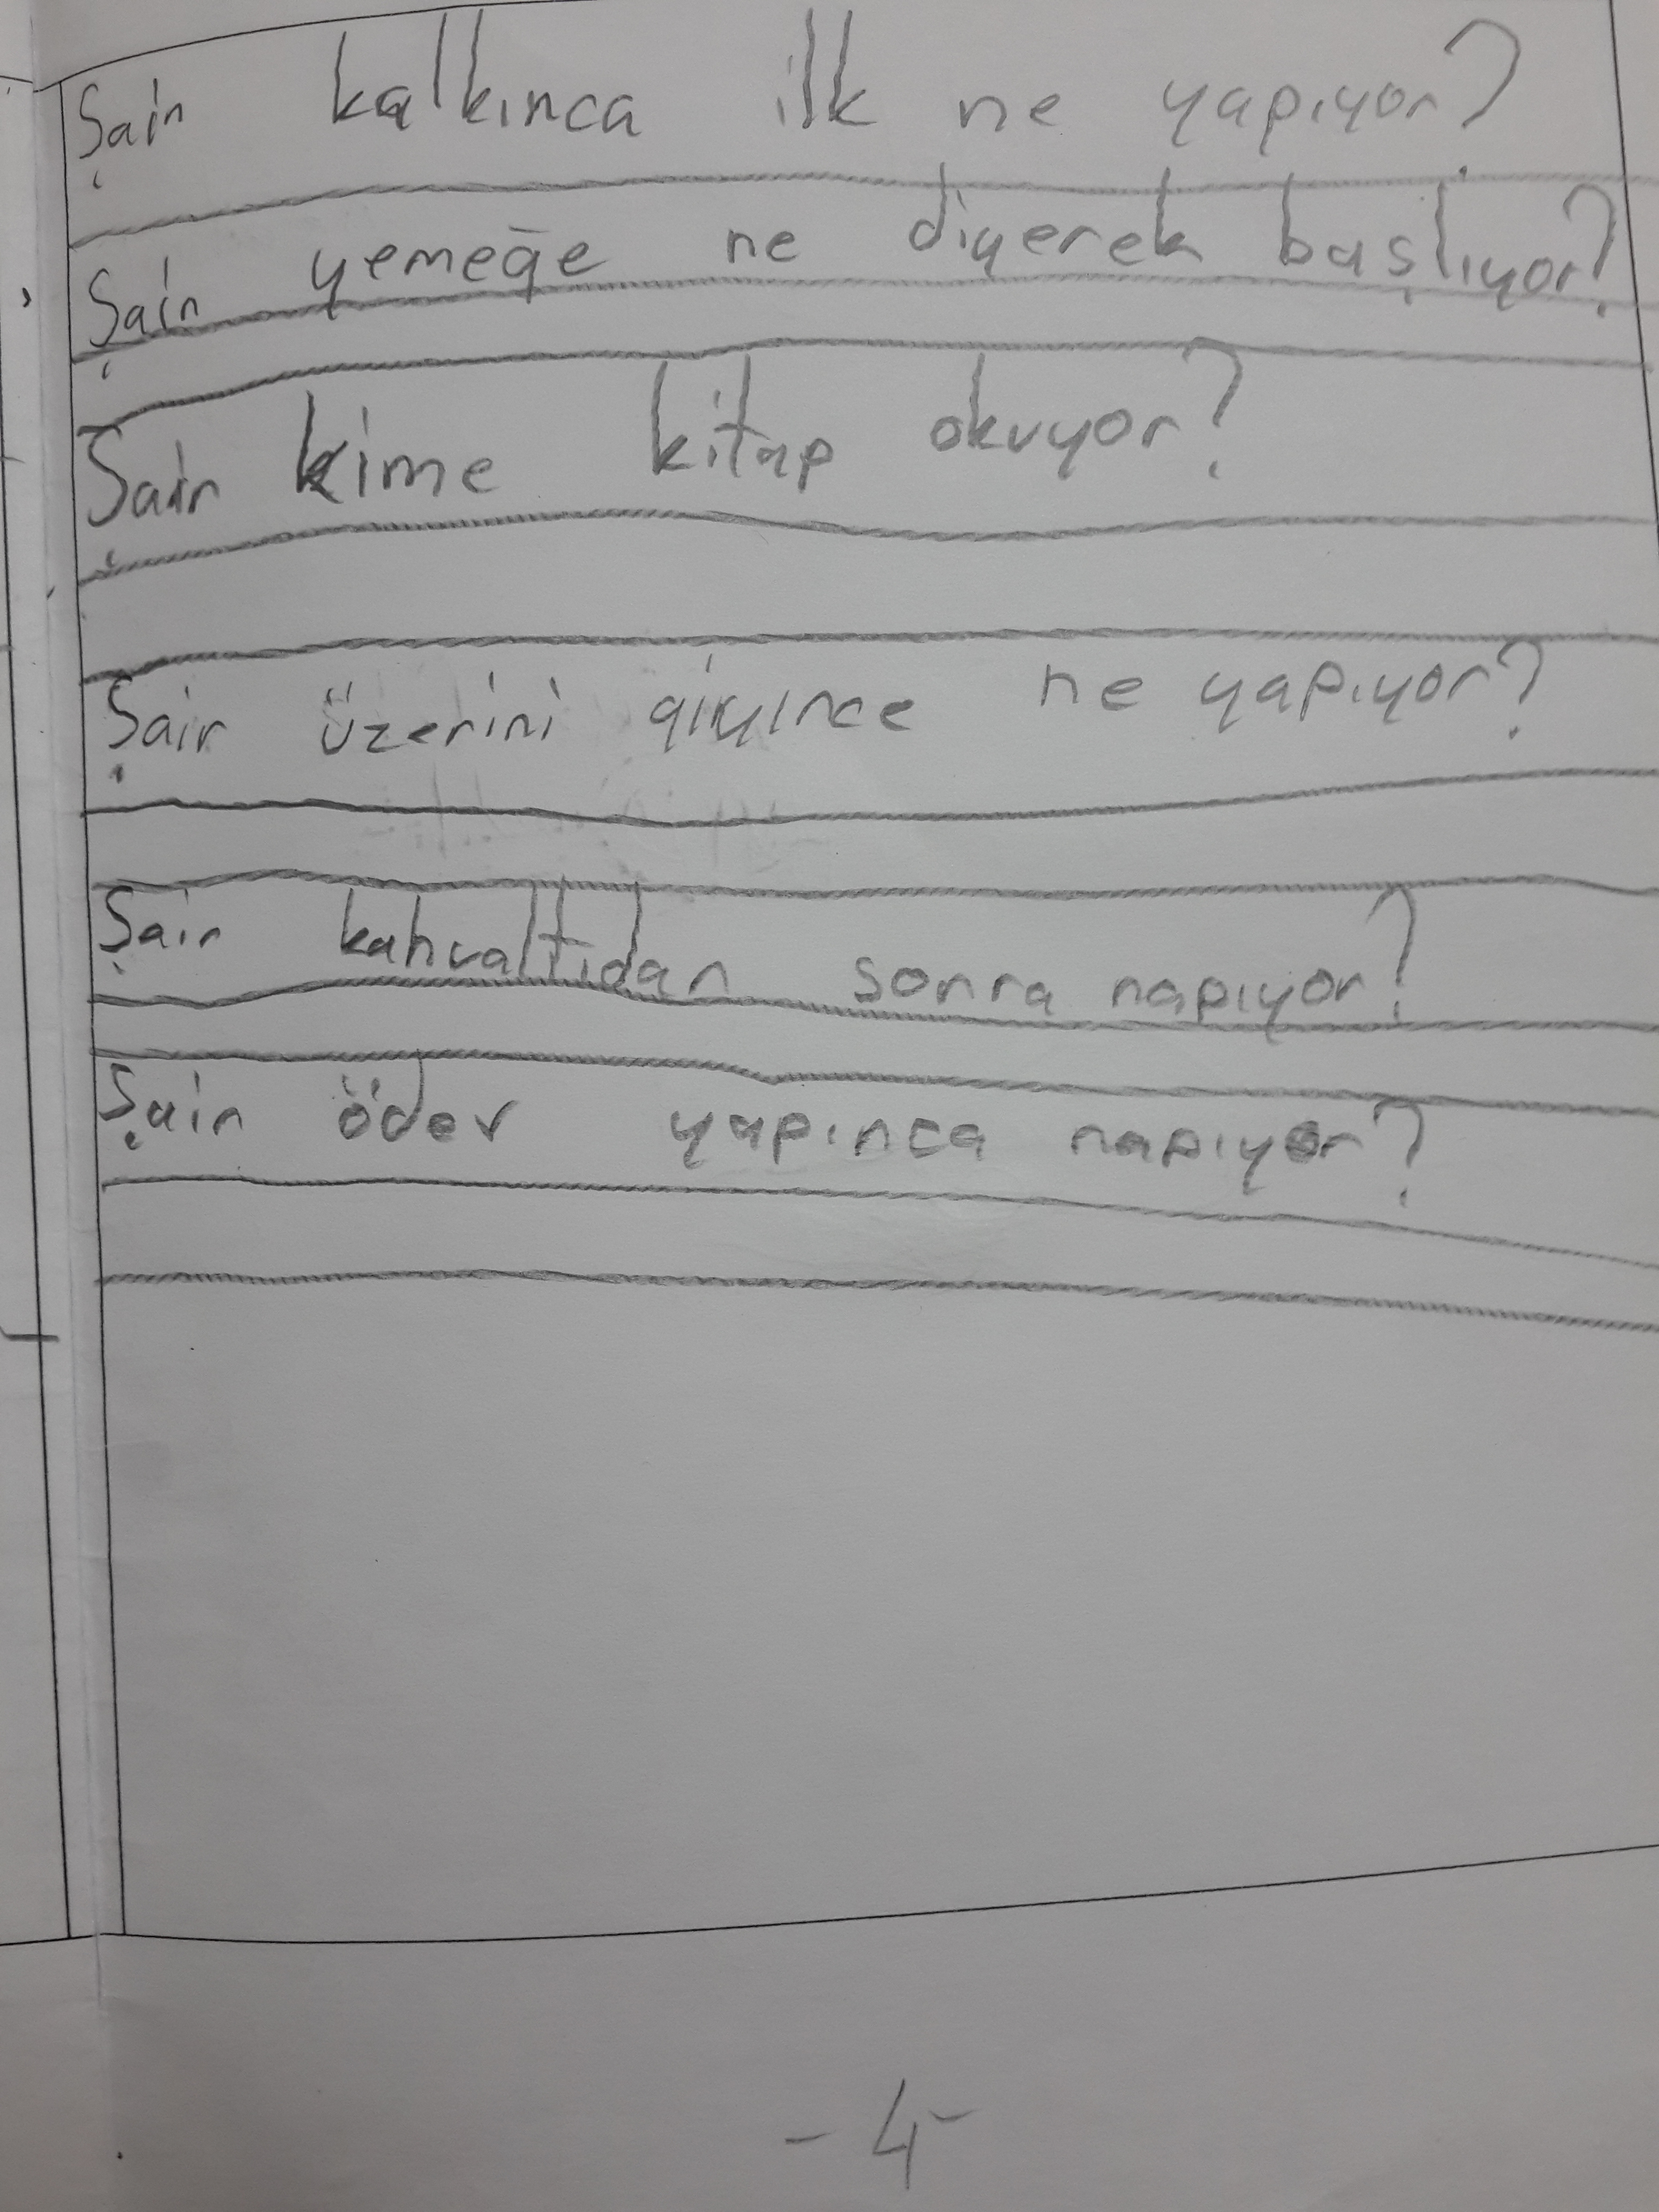 Şair kalkınca ilk ne yapıyor?
Şair yemeğe ne diyerek başlıyor?
Şair kime kitap okuyor?
Şair üzerini giyince ne yapıyor?
Şair kahvaltıdan sonra napıyor?
Şair ödev yapınca napıyor?
- 4 -